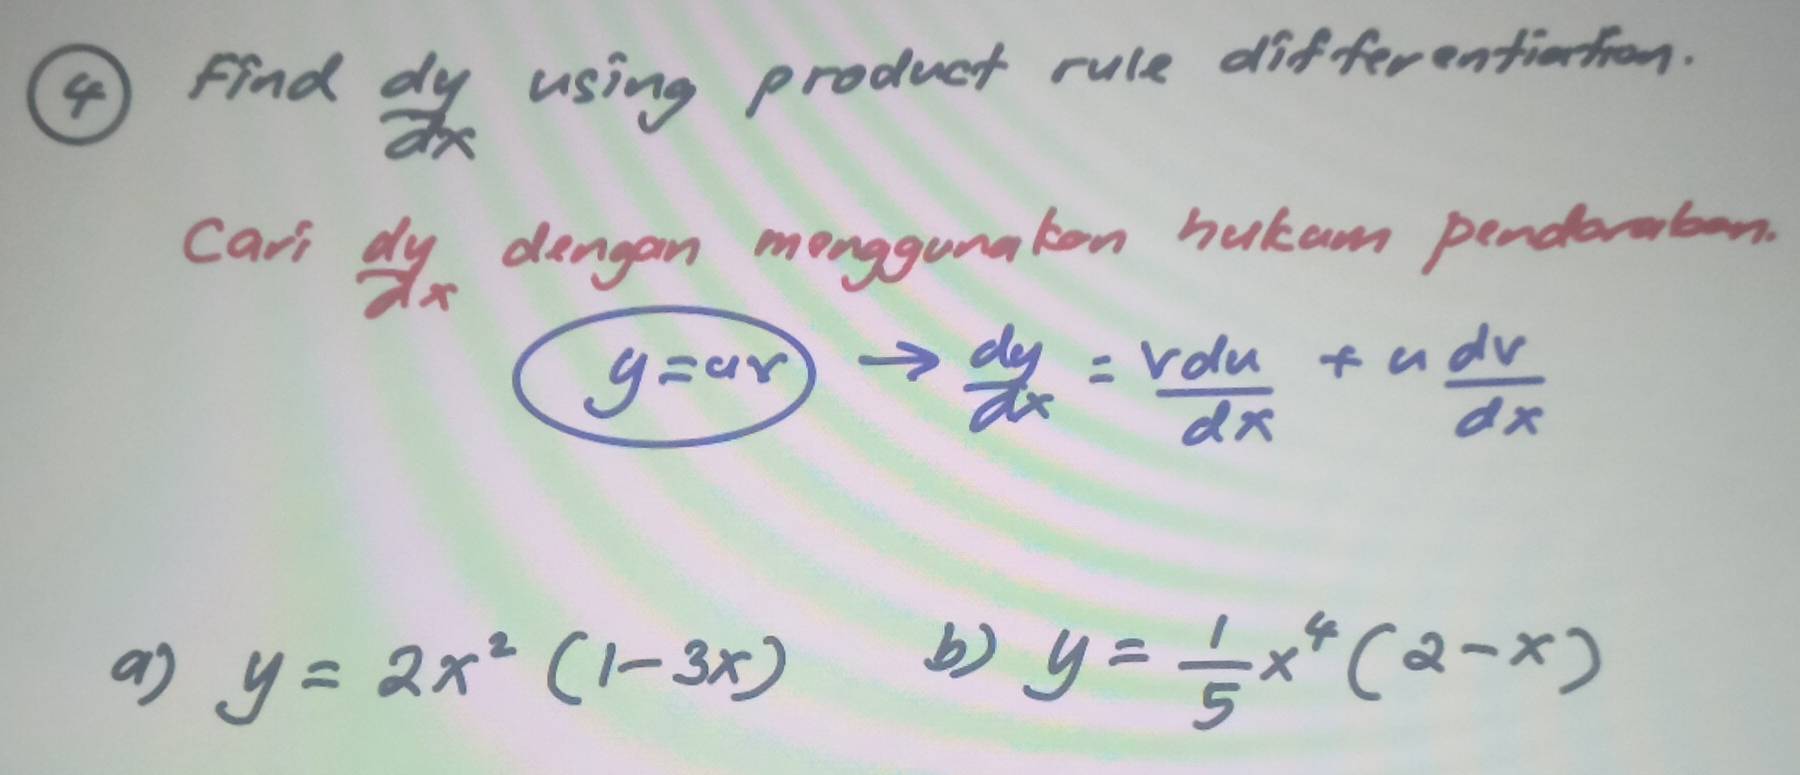 4 Find dy/dx using product rule differentiation.
Cari dy/dx dengan menggunakan hukum pendaraban.
y = uv → dy/dx = v du/dx + u dv/dx
a) y = 2x² (1 - 3x) b) y = 1/5 x⁴ (2 - x)